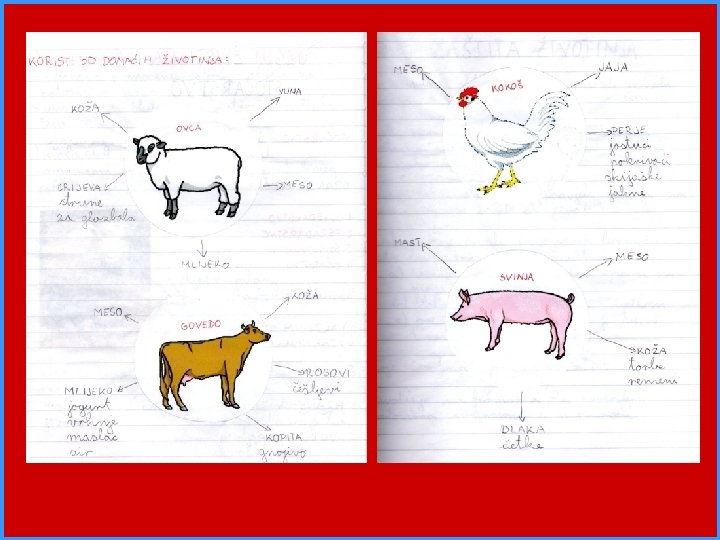 KORIST OD DOMAĆIH ŽIVOTINJA:
KOŽA
VUNA
OVCA
CRIJEVA
strune
za glazbala
MESO
MLIJEKO
MESO
KOŽA
GOVEDO
MLIJEKO
jogurt
vrhnje
maslac
sir
ROGOVI
češljevi
KOPITA
gnojivo
MESO
JAJA
KOKOŠ
PERJE
jastuci
pokrivači
skijaške
jakne
MAST
MESO
SVINJA
KOŽA
torbe
remeni
DLAKA
četke